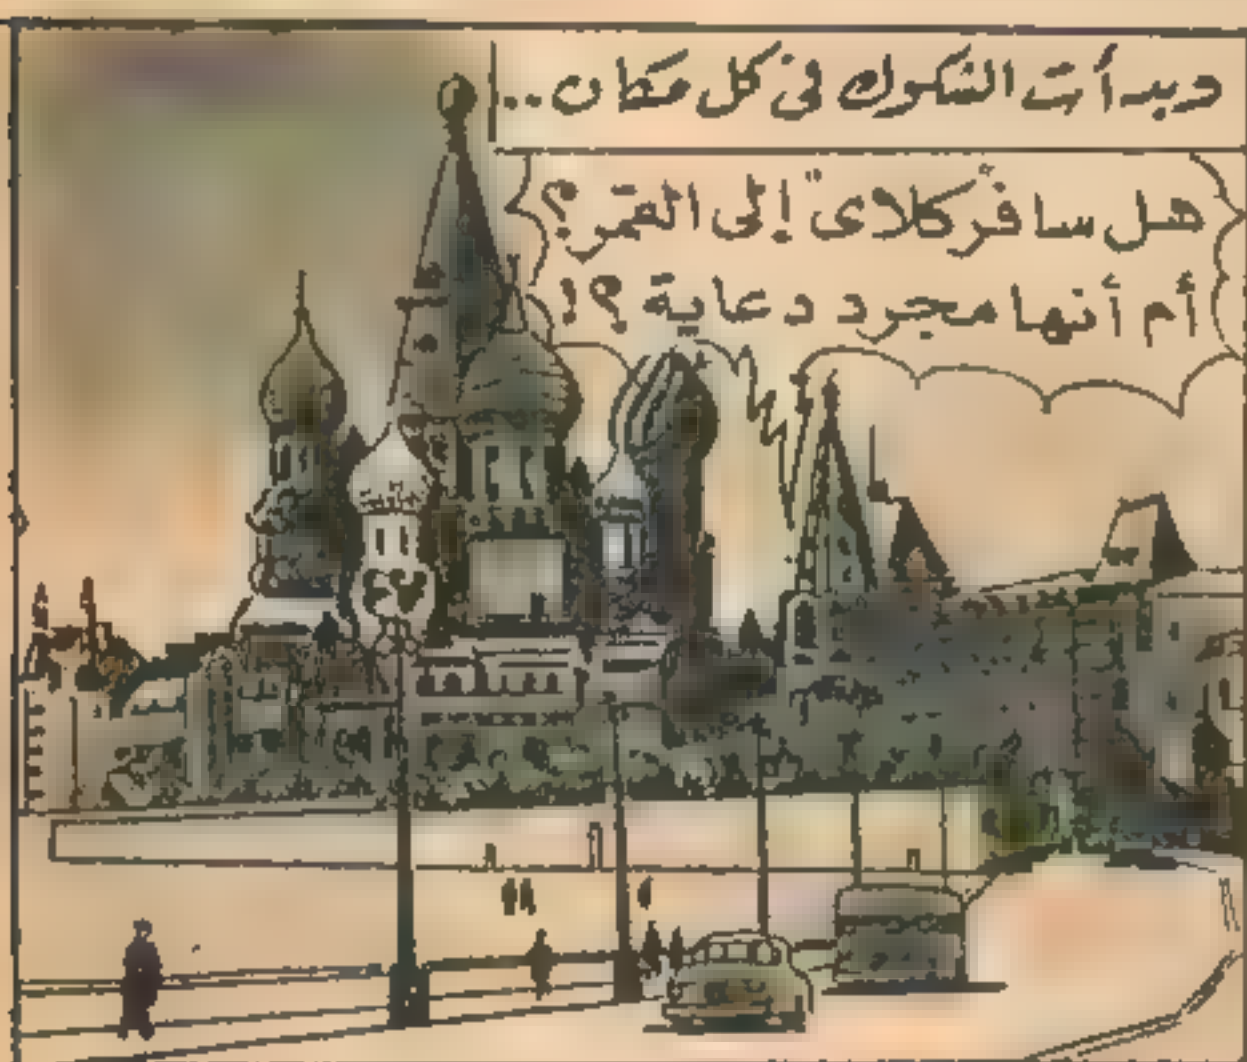 وبدأت الشكوك فى كل مكان ..
هل سافر "كلاى" إلى القمر؟
أم أنها مجرد دعاية ؟!